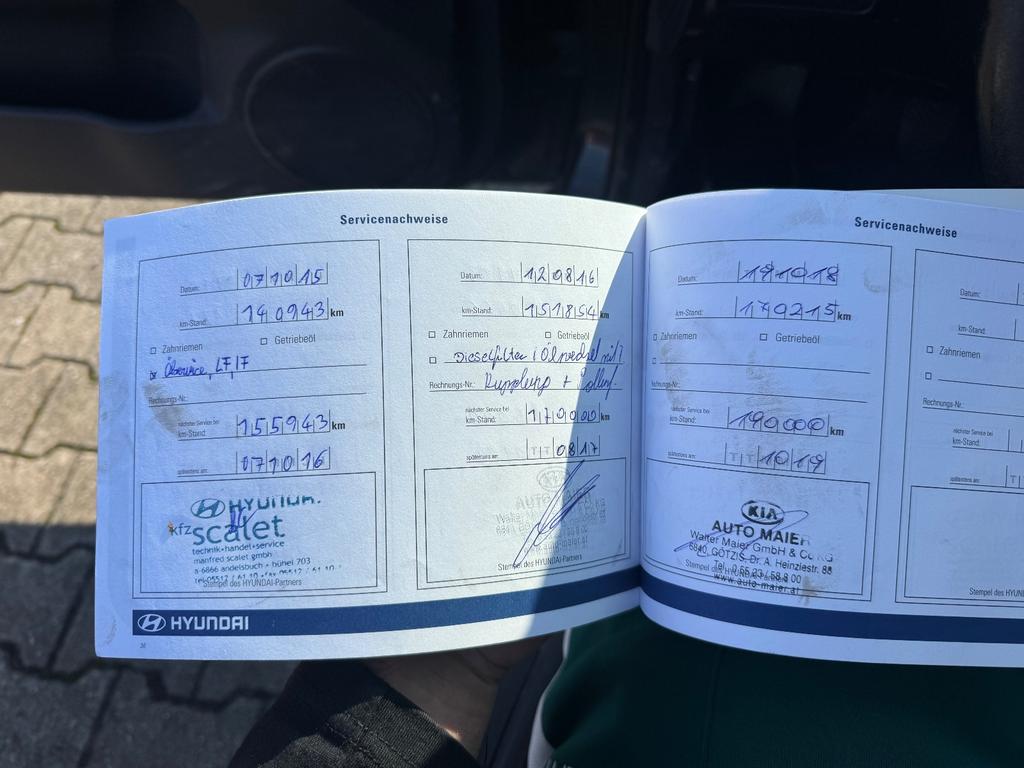 Servicenachweise
Datum: 07 10 15
km-Stand: 140943 km
Zahnriemen
Getriebeöl
Rechnungs-Nr.:
nächster Service bei
km-Stand: 155943 km
spätestens am: 07 10 16
HYUNDAI
kfz scalet
technik•handel•service
manfred scalet gmbh
a-6866 andelsbuch • bühel 703
Stempel des HYUNDAI-Partners
Datum: 12 08 16
km-Stand: 151854 km
Zahnriemen
Getriebeöl
Dieselfilter, Ölwechsel mit
Rechnungs-Nr.:
nächster Service bei
km-Stand: km
spätestens am: TT 08 17
AUTO
Walter Maier
Stempel des HYUNDAI-Partners
HYUNDAI
Servicenachweise
Datum:
km-Stand: 170215 km
Zahnriemen
Getriebeöl
Rechnungs-Nr.:
nächster Service bei
km-Stand: 190000 km
spätestens am: TT 10 19
KIA
AUTO MAIER
Walter Maier GmbH & Co KG
6840 GÖTZIS, Dr. A. Heinzlestr. 88
Tel. 0 55 23 / 58 8 00
www.auto-maier.at
Stempel des HYUNDAI-Partners
Datum:
km-Stand:
Zahnriemen
Rechnungs-Nr.:
nächster Service bei
km-Stand:
spätestens am:
Stempel des HYUN